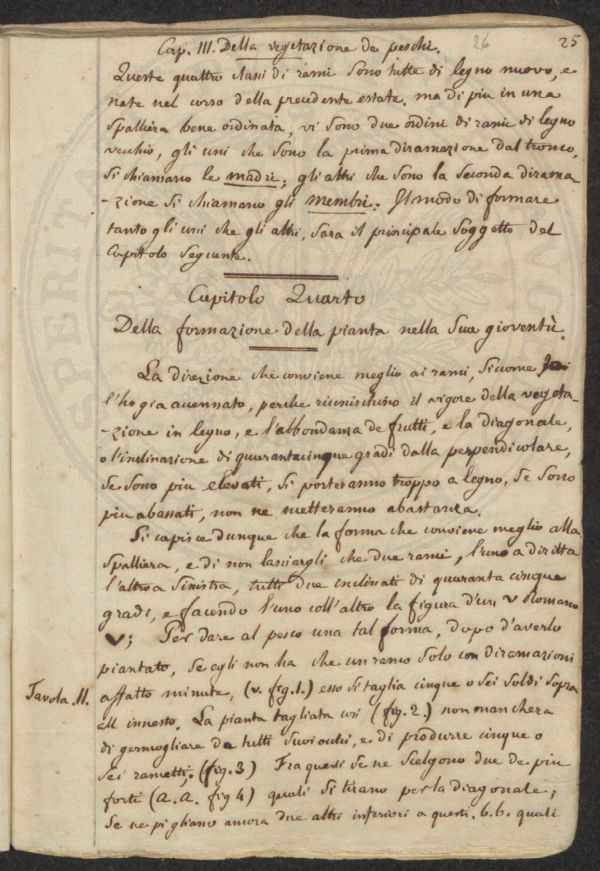 Cap. III. Della vegetazione de peschi. 26 25
Queste quattro classi di rami sono tutte di legno nuovo, e
nate nel corso della precedente estate. ma di piu in una
spalliera bene ordinata, vi sono due ordini di rami di legno
vecchio, gli uni che sono la prima diramazione dal tronco,
si chiamano le madri; gli altri che sono la seconda dirama
-zione si chiamano gli membri. Il modo di formare
tanto gli uni che gli altri, sara il principale soggetto del
Capitolo seguente.
Capitolo Quarto
Della formazione della pianta nella sua gioventù.
La direzione che conviene meglio ai rami, siccome
l'ho gia accennato, perche riuniscono il vigore della vegeta-
-zione in legno, e l'abbondanza de frutti, e la diagonale,
o l'inclinazione di quarantacinque gradi dalla perpendicolare,
se sono piu elevati, si porteranno troppo a legno, se sono
piu abassati, non ne metteranno abastanza.
Si capisce dunque che la forma che conviene meglio alla
spalliera, e di non lasciargli che due rami, l'uno a diritta
l'altro a sinistra, tutti due inclinati di quaranta cinque
gradi, e facendo l'uno coll'altro la figura d'un V Romano
V; Per dare al pesco una tal forma, dopo d'averlo
piantato, se egli non ha che un ramo solo con diramazioni
Tavola. II. affatto minute, (v. fig. 1.) esso si taglia cinque o sei soldi sopra
all innesto. La pianta tagliata cosi (fig. 2.) non manchera
di germogliare da tutti suoi occhi, e di produrre cinque o
sei rametti. (fig. 3) Fra questi se ne scelgono due de piu
forti (a. a. fig 4) quali si tirano per la diagonale;
se ne pigliano ancora due altri inferiori a questi. b. b. quali